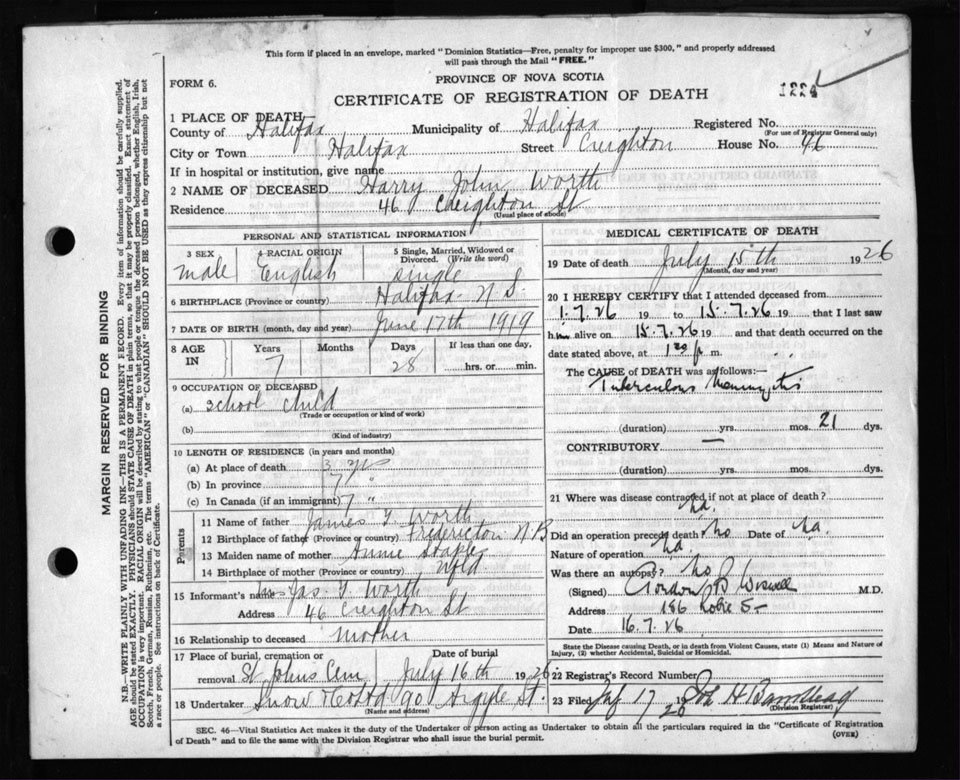 This form if placed in an envelope, marked "Dominion Statistics—Free, penalty for improper use $300," and properly addressed
will pass through the Mail "FREE."
PROVINCE OF NOVA SCOTIA
FORM 6.
CERTIFICATE OF REGISTRATION OF DEATH
1224
1 PLACE OF DEATH
County of Halifax Municipality of Halifax Registered No.
(For use of Registrar General only)
City or Town Halifax Street Creighton House No. 46
If in hospital or institution, give name
2 NAME OF DECEASED Harry John Worth
Residence 46 Creighton St
(Usual place of abode)
PERSONAL AND STATISTICAL INFORMATION
3 SEX male
4 RACIAL ORIGIN English
5 Single, Married, Widowed or Divorced. (Write the word) single
6 BIRTHPLACE (Province or country) Halifax N S.
7 DATE OF BIRTH (month, day and year) June 17th 1919
8 AGE IN Years 7 Months Days 28 If less than one day, hrs. or min.
9 OCCUPATION OF DECEASED
(a) School child
(Trade or occupation or kind of work)
(b)
(Kind of industry)
10 LENGTH OF RESIDENCE (in years and months)
(a) At place of death 3 yrs
(b) In province 7 "
(c) In Canada (if an immigrant) 7 "
Parents
11 Name of father James T Worth
12 Birthplace of father (Province or country) Fredericton N B
13 Maiden name of mother Annie Staples
14 Birthplace of mother (Province or country) Nfld
15 Informant's name Jas T Worth
Address 46 Creighton St
16 Relationship to deceased mother
17 Place of burial, cremation or removal St Johns Cem
Date of burial July 16th 1926
18 Undertaker Snow & Co Ltd 90 Argyle St.
(Name and address)
MEDICAL CERTIFICATE OF DEATH
19 Date of death July 15th 1926
(Month, day and year)
20 I HEREBY CERTIFY that I attended deceased from
1.7.26 19 to 15.7.26 19 that I last saw
him alive on 15.7.26 19 and that death occurred on
date stated above, at 1 p m.
The CAUSE of DEATH was as follows:—
Tuberculous Meningitis
(duration) yrs. mos. 21 dys.
CONTRIBUTORY —
(duration) yrs. mos. dys.
21 Where was disease contracted if not at place of death?
na.
Did an operation precede death? no Date of na
Nature of operation na
Was there an autopsy? no
(Signed) Gordon B Wiswell M.D.
Address 186 Robie St
Date 16.7.26
State the Disease causing Death, or in death from Violent Causes, state (1) Means and Nature of Injury, (2) whether Accidental, Suicidal or Homicidal.
22 Registrar's Record Number
23 Filed July 17 1926 H Barnstead
(Division Registrar)
SEC. 46—Vital Statistics Act makes it the duty of the Undertaker or person acting as Undertaker to obtain all the particulars required in the "Certificate of Registration
of Death" and to file the same with the Division Registrar who shall issue the burial permit. (OVER)
MARGIN RESERVED FOR BINDING
N.B.—WRITE PLAINLY WITH UNFADING INK—THIS IS A PERMANENT RECORD. Every item of information should be carefully supplied.
AGE should be stated EXACTLY. PHYSICIANS should STATE CAUSE OF DEATH in plain terms, so that it may be properly classified. Exact statement of
OCCUPATION is very important. RACIAL ORIGIN will be described by stating to what people or tongue the deceased person belonged, whether English, Irish,
Scotch, French, German, Russian, Ruthenian, etc. The terms "AMERICAN" or "CANADIAN" SHOULD NOT BE USED as they express citizenship but not
a race or people. See instructions on back of Certificate.